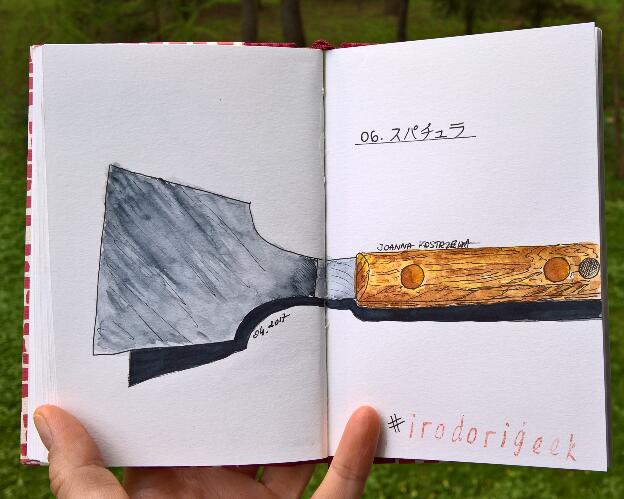 06. スパチュラ
JOANNA KOSTRZEWA
04.2017
#irodorigeek